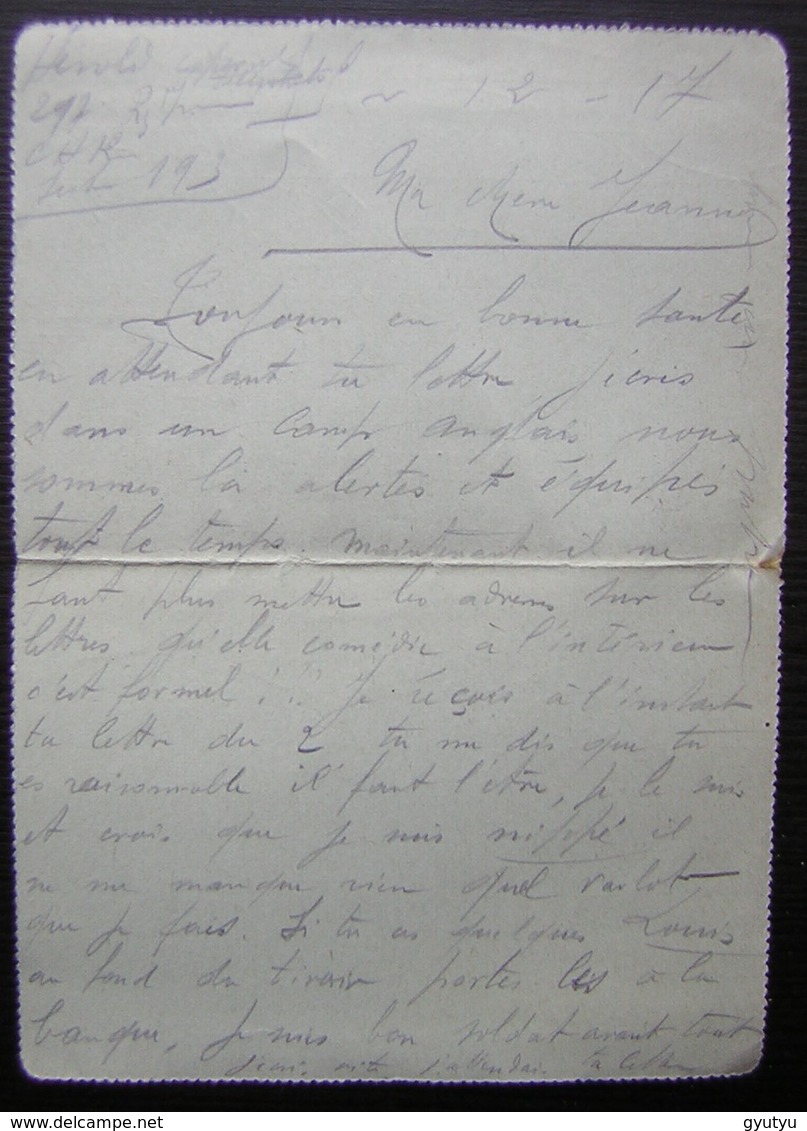 Hérold
291
193
12 - 17
Ma chère Jeanne
Toujours en bonne santé,
en attendant ta lettre, j'écris
dans un camp anglais nous
sommes là alertes et équipés
tout le temps. Maintenant il ne
faut plus mettre les adresses sur les
lettres qu'elle comédie à l'intérieur
c'est formel ! Je reçois à l'instant
ta lettre du 2 tu me dis que tu
es raisonnable il faut l'être, je le suis
et crois que je suis nippé il
ne me manque rien quel
que je fais. Si tu as quelques Louis
au fond du tiroir portes les à la
banque, je suis bon soldat avant tout
vite j'attendais ta lettre
gyutyu